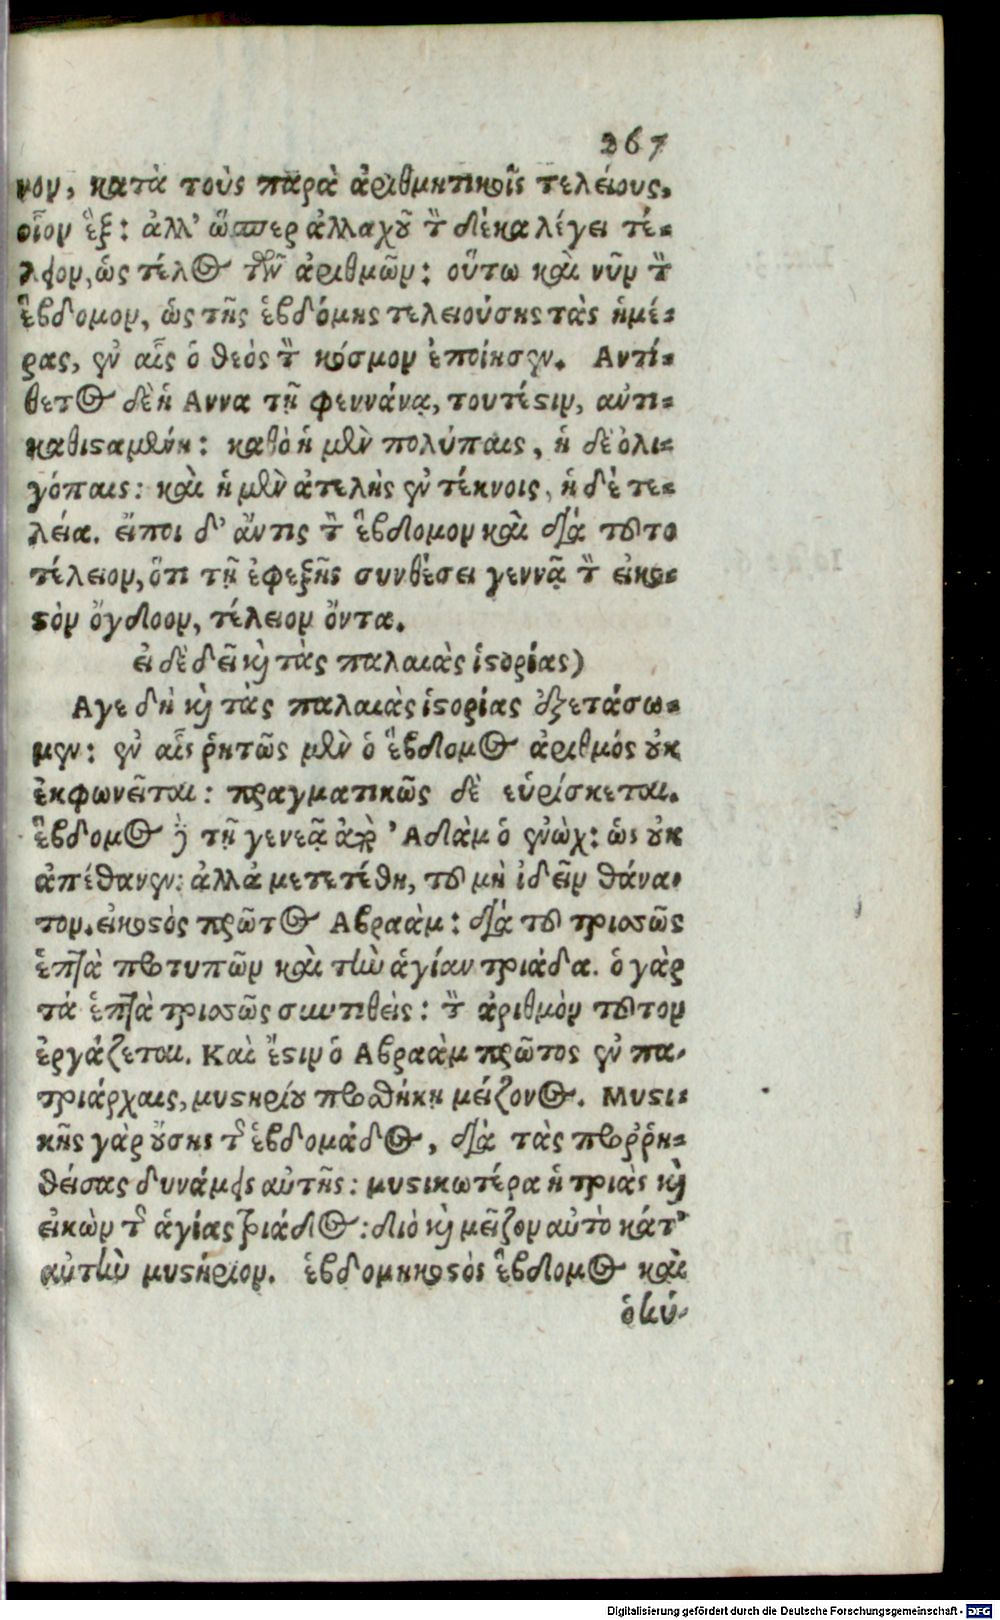 267
νον, κατὰ τοὺς παρὰ ἀριθμητικοῖς τελείους,
οἷον ἓξ: ἀλλ' ὥσπερ ἀλλαχοῦ τὸν δέκα λέγει τέ-
λειον, ὡς τέλος τῶν ἀριθμῶν: οὕτω καὶ νῦν τὸν
ἕβδομον, ὡς τῆς ἑβδόμης τελειούσης τὰς ἡμέ-
ρας, ἐν αἷς ὁ θεὸς τὸν κόσμον ἐποίησεν. Αντί-
θετος δὲ ἡ Αννα τῇ φεννάνᾳ, τουτέστιν, ἀντι-
καθισταμένη: καθὸ ἡ μὲν πολύπαις, ἡ δὲ ὀλι-
γόπαις: καὶ ἡ μὲν ἀτελὴς ἐν τέκνοις, ἡ δὲ τε-
λεία. εἴποι δ' ἄντις τὸν ἕβδομον καὶ διὰ τοῦτο
τέλειον, ὅτι τῇ ἐφεξῆς συνθέσει γεννᾷ τὸν εἰκο-
στὸν ὄγδοον, τέλειον ὄντα.
εἰ δὲ δεῖ καὶ τὰς παλαιὰς ἱστορίας)
Αγε δὴ καὶ τὰς παλαιὰς ἱστορίας ἐξετάσω-
μεν: ἐν αἷς ῥητῶς μὲν ὁ ἕβδομος ἀριθμός οὐκ
ἐκφωνεῖται: πραγματικῶς δὲ εὑρίσκεται.
ἕβδομος γὰρ τῇ γενεᾷ ἀπὸ 'Αδὰμ ὁ ἐνὼχ: ὡς οὐκ
ἀπέθανεν: ἀλλὰ μετετέθη, τοῦ μὴ ἰδεῖν θάνα-
τον. εἰκοστὸς πρῶτος Αβραάμ: διὰ τοῦ τρισσῶς
ἑπτὰ προτυπῶν καὶ τὴν ἁγίαν τριάδα. ὁ γὰρ
τὰ ἑπτὰ τρισσῶς συντιθεὶς: τὸν ἀριθμὸν τοῦτον
ἐργάζεται. Καὶ ἔστιν ὁ Αβραὰμ πρῶτος ἐν πα-
τριάρχαις, μυστηρίου προσθήκῃ μείζονος. Μυστι-
κῆς γὰρ οὔσης τῆς ἑβδομάδος, διὰ τὰς προῤῥη-
θείσας δυνάμεις αὐτῆς: μυστικωτέρα ἡ τριὰς καὶ
εἰκὼν τῆς ἁγίας τριάδος: διὸ καὶ μεῖζον αὐτὸ κάτ'
αὐτὴν μυστήριον. ἑβδομηκοστὸς ἕβδομος καὶ
ὁ κύ-
Digitalisierung gefördert durch die Deutsche Forschungsgemeinschaft - DFG